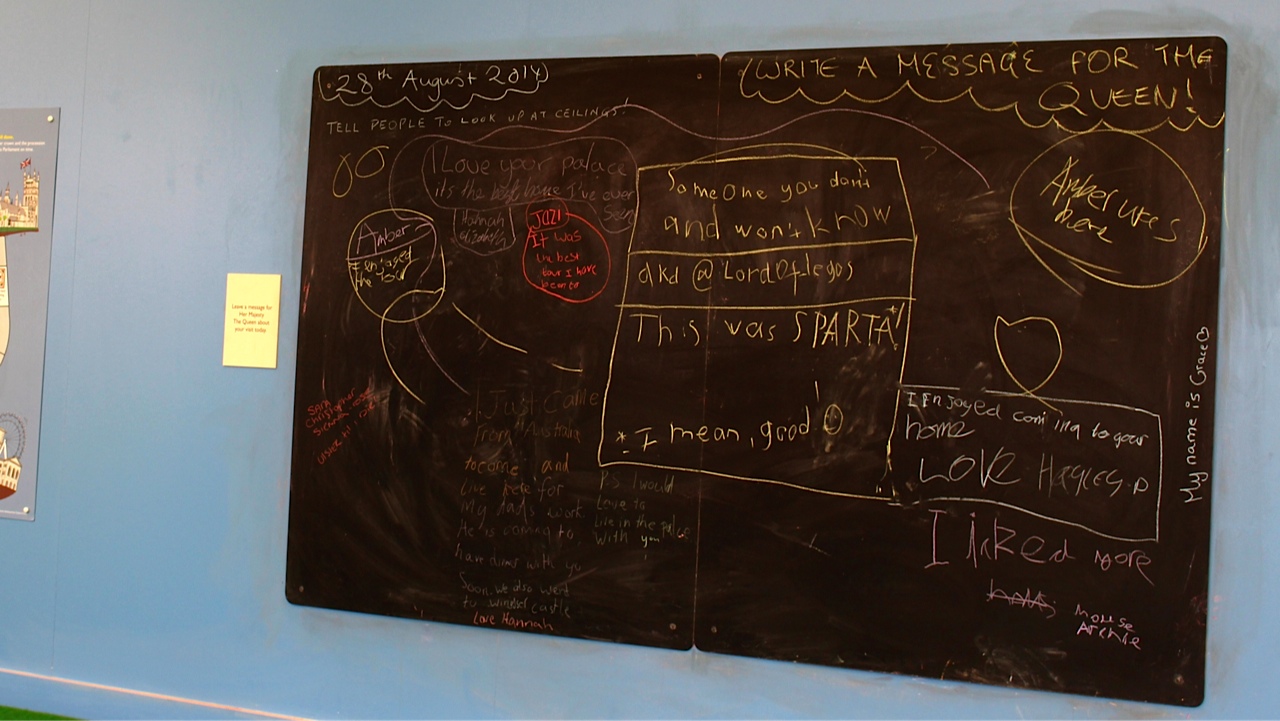 28th August 2014
TELL PEOPLE TO LOOK UP AT CEILINGS!
I Love your palace
its the best home I've ever
Seen
Hannah
Elizabeth
Amber
I enjoyed
the tour
JOZI
It was
the best
tour I have
been to
Leave a message for
Her Majesty
The Queen about
your visit today.
SARA
Christopher
I Just Came
From Australia
to come and
live here for
My dads work
He is coming to
have diner with you
Soon we also went
to windsor castle
Love Hannah
P.S I would
Love to
Live in the palace
with you!
WRITE A MESSAGE FOR THE
QUEEN!
Someone you don't
and won't know
aka @LordOflegos
This was SPARTA*!
* I mean, good!
Amber
here
I Enjoyed coming to your
home
LOVE Hayley.D
I liked more
house
Archie
My name is Grace